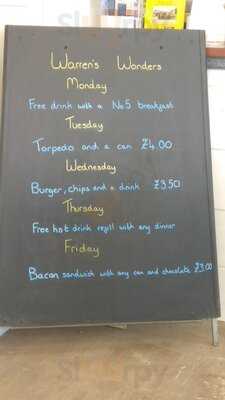 Warren's Wonders
Monday
Free drink with a No5 breakfast
Tuesday
Torpedo and a can £4.00
Wednesday
Burger, chips and a drink £3.50
Thursday
Free hot drink refill with any dinner
Friday
Bacon sandwich with any can and chocolate £3.00